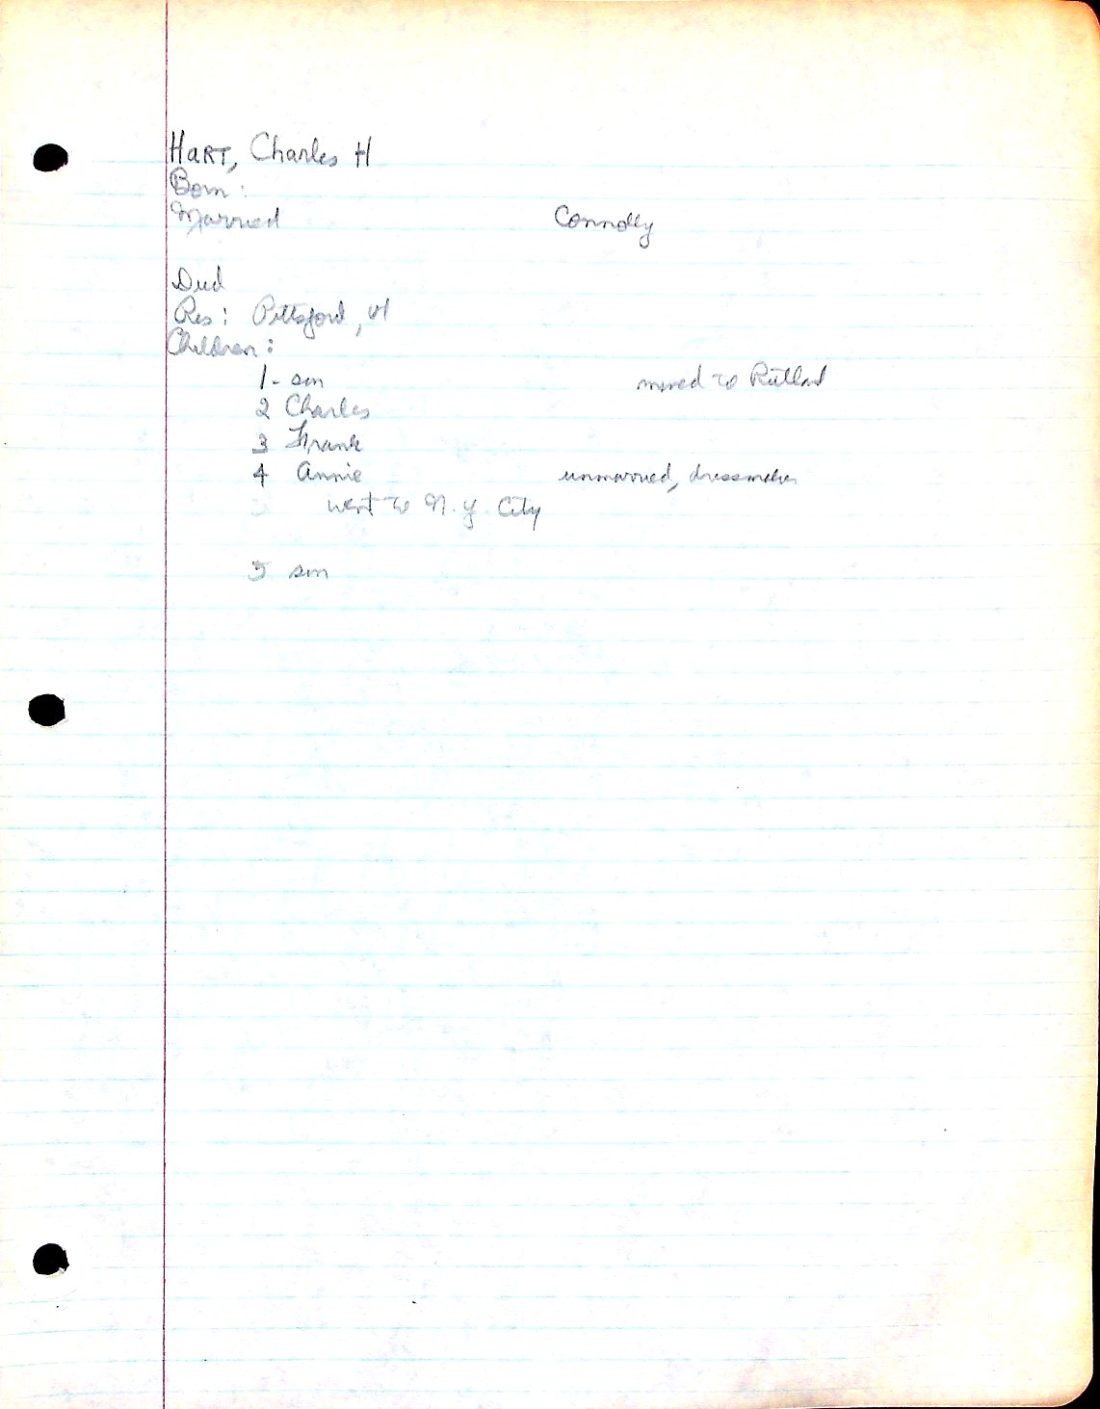 HART, Charles H
Born:
Married Connolly
Died
Res: Pittsford, Vt
Children:
1- son moved to Rutland
2 Charles
3 Frank
4 Annie unmarried, dressmaker
went to N.Y. City
5 son